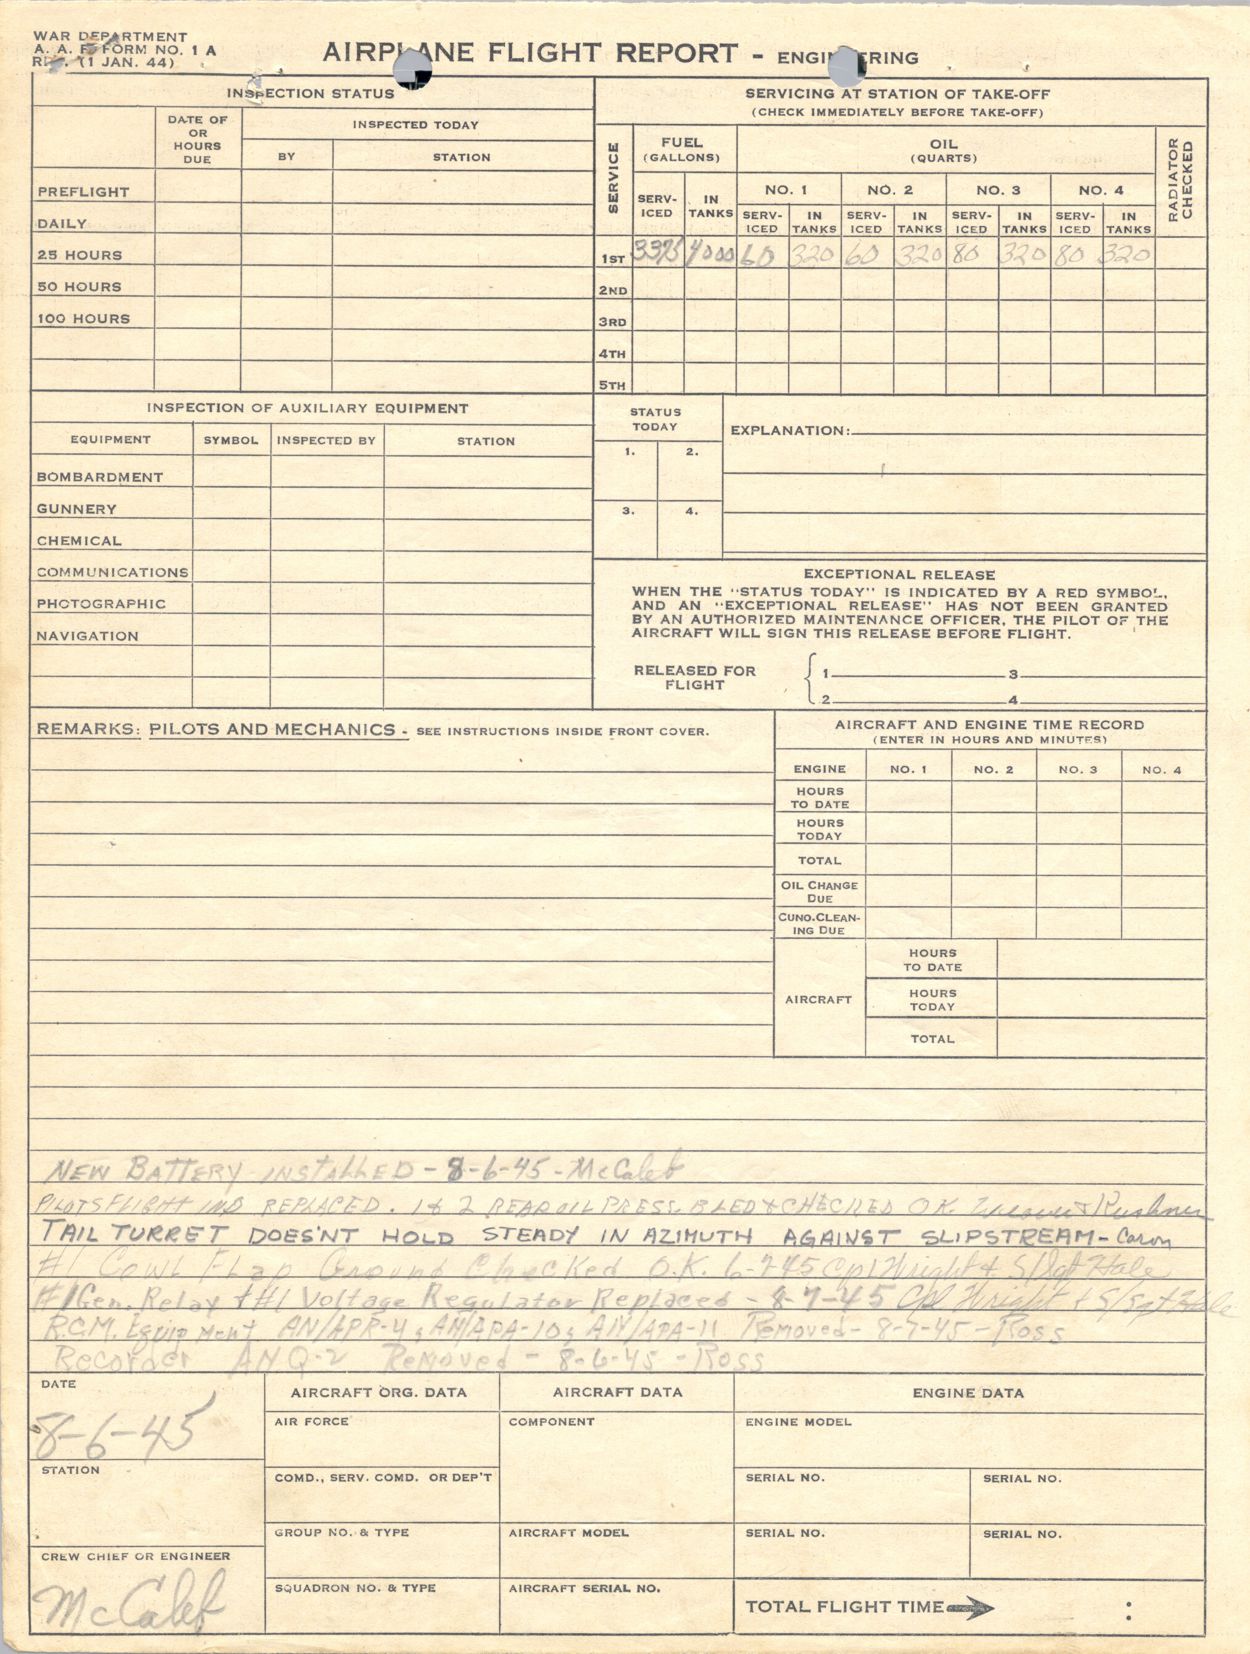 WAR DEPARTMENT
A. A. F. FORM NO. 1 A
REV. (1 JAN. 44)
AIRPLANE FLIGHT REPORT - ENGINEERING
INSPECTION STATUS
DATE OF OR HOURS DUE
INSPECTED TODAY
BY
STATION
PREFLIGHT
DAILY
25 HOURS
50 HOURS
100 HOURS
SERVICING AT STATION OF TAKE-OFF
(CHECK IMMEDIATELY BEFORE TAKE-OFF)
SERVICE
FUEL
(GALLONS)
OIL
(QUARTS)
RADIATOR CHECKED
SERV-ICED
IN TANKS
NO. 1
NO. 2
NO. 3
NO. 4
SERV-ICED
IN TANKS
SERV-ICED
IN TANKS
SERV-ICED
IN TANKS
SERV-ICED
IN TANKS
1ST 3375 4000 60 320 60 320 80 320 80 320
2ND
3RD
4TH
5TH
INSPECTION OF AUXILIARY EQUIPMENT
EQUIPMENT
SYMBOL
INSPECTED BY
STATION
BOMBARDMENT
GUNNERY
CHEMICAL
COMMUNICATIONS
PHOTOGRAPHIC
NAVIGATION
STATUS TODAY
1.
2.
3.
4.
EXPLANATION:
EXCEPTIONAL RELEASE
WHEN THE "STATUS TODAY" IS INDICATED BY A RED SYMBOL,
AND AN "EXCEPTIONAL RELEASE" HAS NOT BEEN GRANTED
BY AN AUTHORIZED MAINTENANCE OFFICER, THE PILOT OF THE
AIRCRAFT WILL SIGN THIS RELEASE BEFORE FLIGHT.
RELEASED FOR FLIGHT
1 3
2 4
REMARKS: PILOTS AND MECHANICS - SEE INSTRUCTIONS INSIDE FRONT COVER.
AIRCRAFT AND ENGINE TIME RECORD
(ENTER IN HOURS AND MINUTES)
ENGINE NO. 1 NO. 2 NO. 3 NO. 4
HOURS TO DATE
HOURS TODAY
TOTAL
OIL CHANGE DUE
CUNO.CLEAN-ING DUE
AIRCRAFT
HOURS TO DATE
HOURS TODAY
TOTAL
NEW BATTERY INSTALLED - 8-6-45 - McCaleb
PILOTS FLIGHT IND REPLACED. 1 & 2 REAR OIL PRESS. BLED & CHECKED O.K. & Kushner
TAIL TURRET DOES'NT HOLD STEADY IN AZIMUTH AGAINST SLIPSTREAM - Caron
#1 Cowl Flap Ground Checked O.K. 6-7-45 Cpl Wright & S/Sgt Hale
#1 Gen. Relay & #1 Voltage Regulator Replaced - 8-7-45 Cpl Wright & S/Sgt Hale
R.C.M. Equipment AN/APR-4, AN/APA-10, AN/APA-11 Removed - 8-7-45 - Ross
Recorder ANQ-2 Removed - 8-6-45 - Ross
DATE
8-6-45
STATION
CREW CHIEF OR ENGINEER
McCaleb
AIRCRAFT ORG. DATA
AIR FORCE
COMD., SERV. COMD. OR DEP'T
GROUP NO. & TYPE
SQUADRON NO. & TYPE
AIRCRAFT DATA
COMPONENT
AIRCRAFT MODEL
AIRCRAFT SERIAL NO.
ENGINE DATA
ENGINE MODEL
SERIAL NO.
SERIAL NO.
SERIAL NO.
SERIAL NO.
TOTAL FLIGHT TIME :